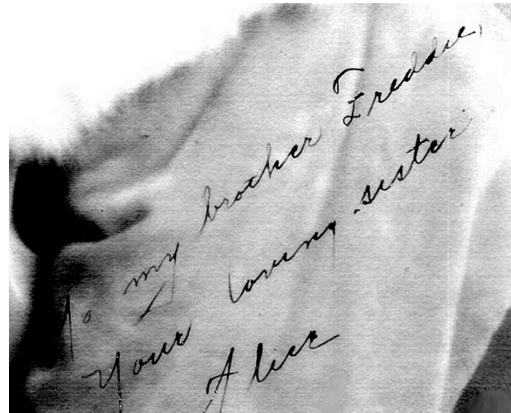 To my brother Freddie,
Your loving sister
Alice